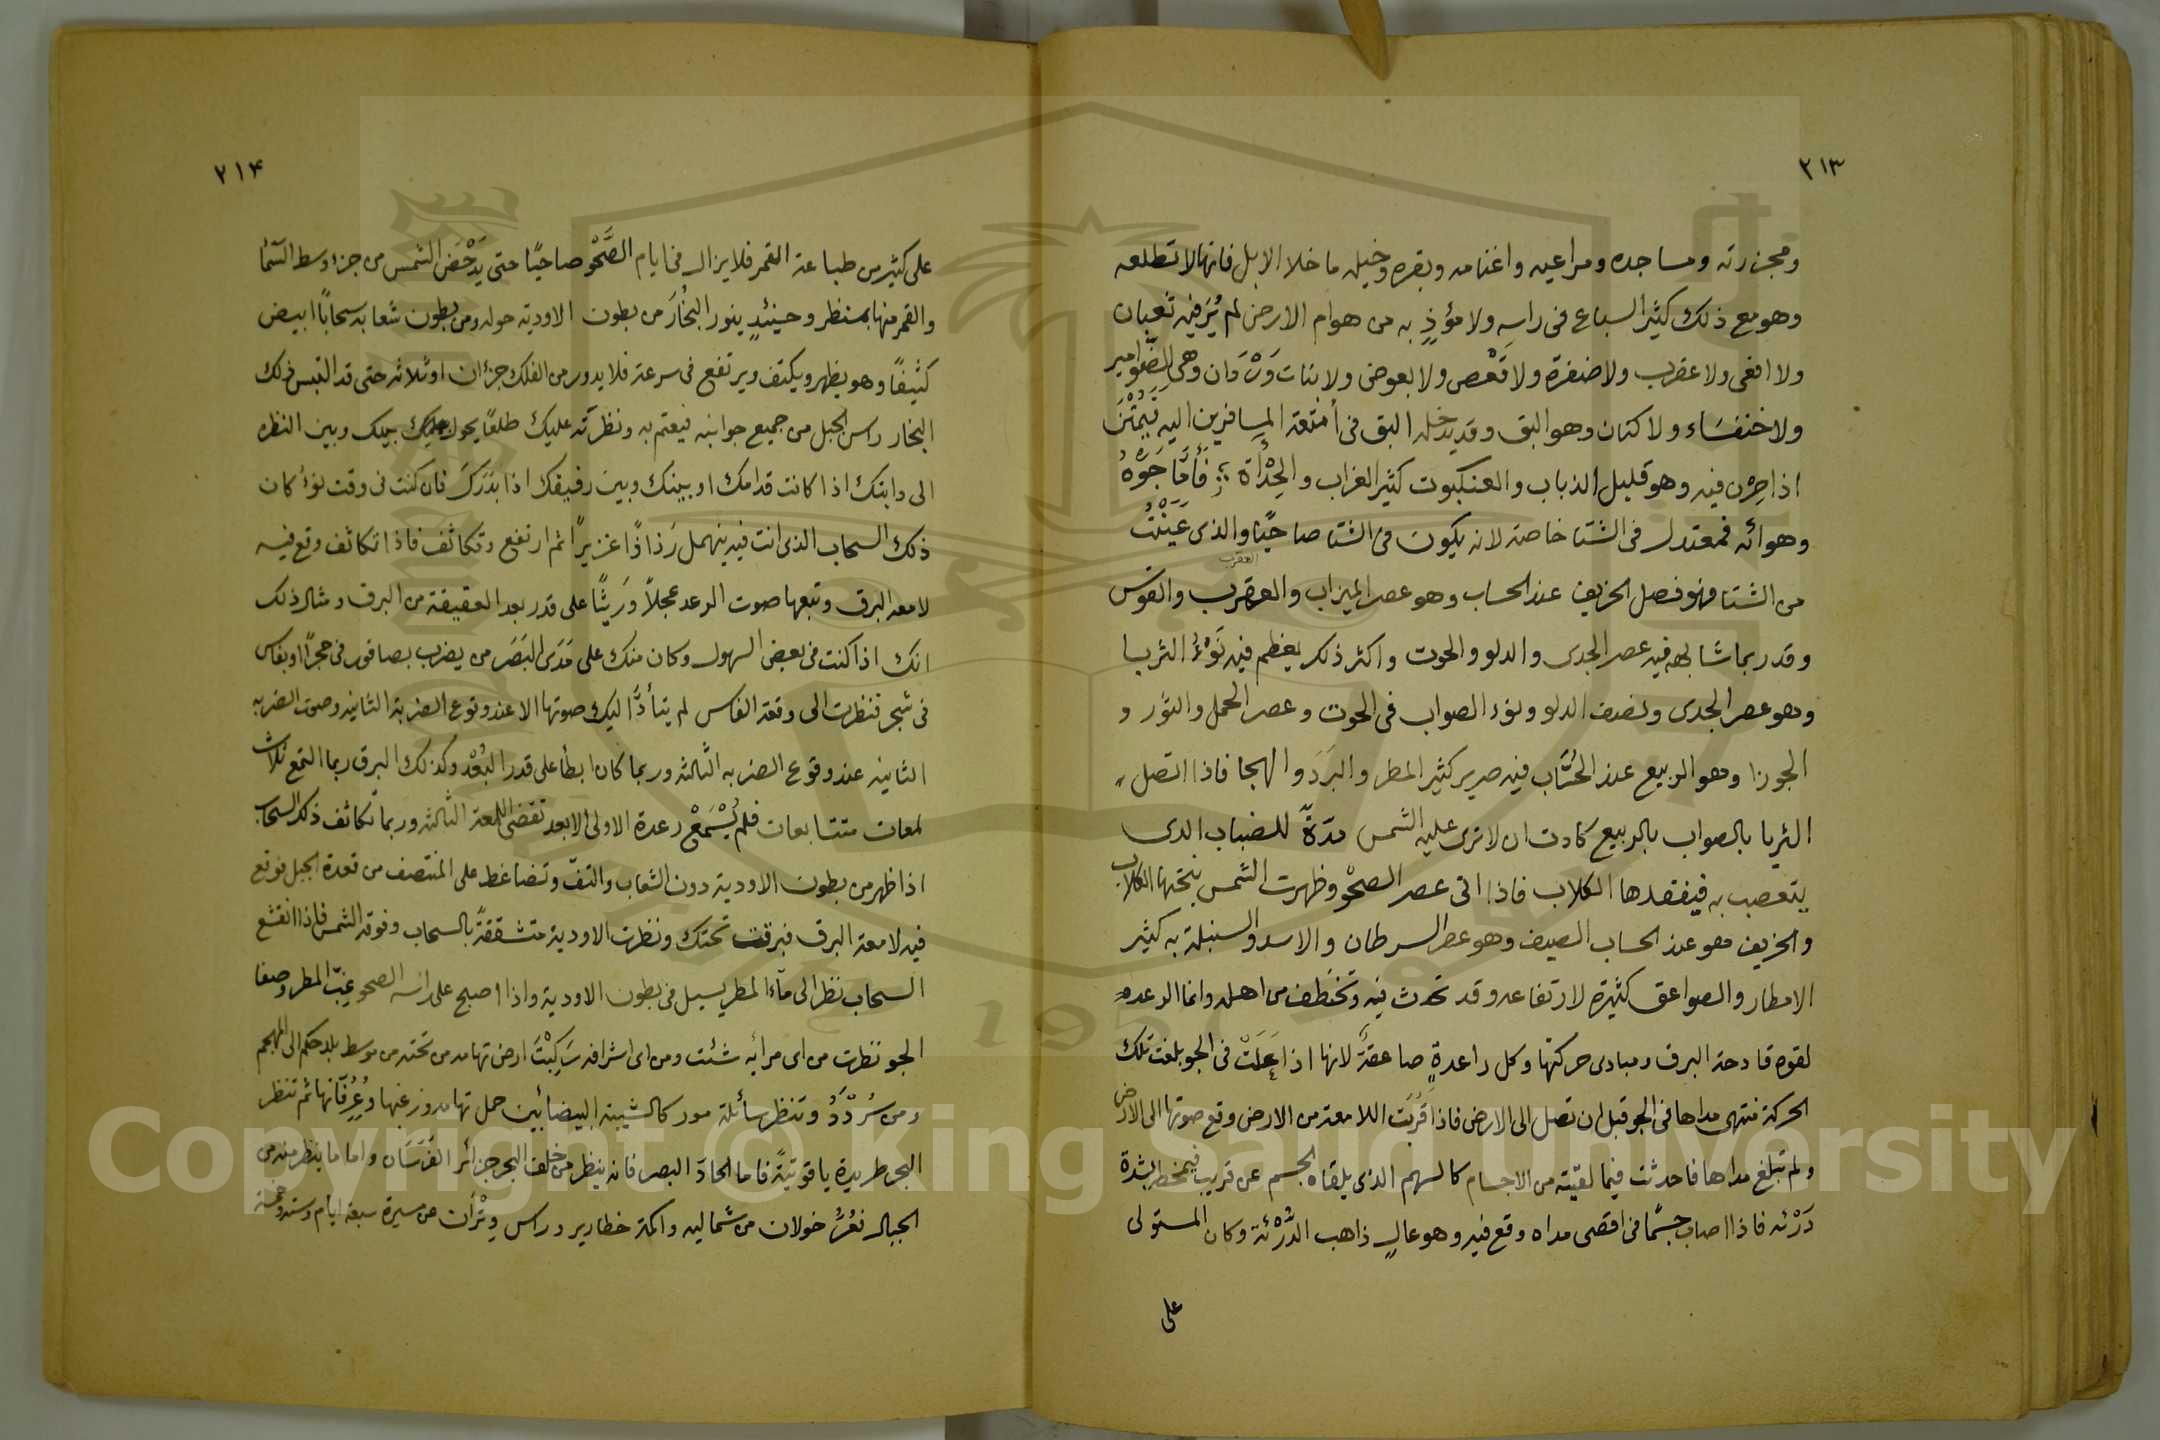 ٢١٣
ومجزرته ومساجده ومراعيه واغنامه وبقره وخيله ما خلا الابل فانها لا تطلعه
وهو مع ذلك كثير السباع فى راسه ولا مؤذٍ به من هوام الارض لم يُرَ فيه ثعبان
ولا افعى ولا عقرب ولا ضفرة ولا قَعْص ولا بعوض ولا بنات وَرْدان وهى الضَّوامير
ولا خنفسَاء ولا كتان وهو البق وقد يدخله البق فى أمتعة المسافرين اليه فَيَمُتْنَ
اذا صِرْن فيه وهو قليل الذباب والعنكبوت كثير الغراب والحِدْأة فأمّا جَوُّهُ
وهوائه فمعتدل فى الشتا خاصة لانه يكون فى الشتا صاحيًا والذى عَيَنْتُ
من الشتا فهو فصل الخريف عند الحساب وهو عصر الميزاب والعقرب والقوس
العقرب
وقد ربما شابهه فيه عصر الجدى والدلو والحوت واكثر ذلك يعظم فيه نَوْءُ الثريا
وهو عصر الجدى ونصف الدلو ونوء الصواب فى الحوت وعصر الحمل والثور و
الجوزا وهو الربيع عند الحُسَّاب فيه صرير كثير المطر والبَرَد والهجا فاذا اتصل
الثريا بالصواب بالربيع كادت ان لا ترى عليه الشمس مدّةً للضباب الذى
يتعصب به فيفقدها الكلاب فاذا اتى عصر الصحْو وظهرت الشمس نبحتها الكلاب
والخريف فهو عند الحساب الصيف وهو عصر السرطان والاسد والسنبلة به كثير
الامطار والصواعق كثيرة لارتفاعه وقد تحدث فيه وتخَطف من اهله وانما الرعدة
لقوه قادحة البرق ومبادى حركتها وكل راعدةٍ صاعقةٌ لانها اذا عَلَتْ فى الجو بلغت تلك
الحركة منتهى مداها فى الجو قبل ان تصل الى الارض فاذا قرُبَت اللامعة من الارض وقع صوتها الى الارض
ولم تبلغ مداها فاحدثت فيما لقيته من الاجسام كالسهم الذى يلقاه الجسم عن قريب فيمخطه بشدة
دَرْئه فاذا اصاب جسمًا فى اقصى مداه وقع فيه وهو عالٍ ذاهب الدَّرْئة وكان المستولى
على
٢١٤
على كثير من طباعة القمر فلا يزال فى ايام الصَّحْو صاحيًا حتى يَدْحَض الشمس من جزء وسط السّما
والقمر منها بمنظر وحينئذٍ ينور البُخَارَ من بطون الاودية حوله ومن بطون شعابه سحابًا ابيض
كثيفًا وهو يظهر ويكثف ويرتفع فى سرعة فلا يدور من الفلك جزءان او ثلاثه حتى قد التبس ذلك
البخار راس الجبل من جميع جوانبه فيعتم به ونظرته عليك طلعًا يحول عليك بينك وبين النظر
الى دابتك اذا كانت قدامك او بينك وبين رفيقك اذا بَدَرَكَ فان كنت فى وقت نوء كان
ذلك السحاب الذى انت فيه ينهمل رَذاذًا غزيرًا ثم ارتفع وتكاثف فاذا تكاثف وقع فيه
لامعه البرق وتبعها صوت الرعد عجلاً ورَيثًا على قدر بعد العقيقة من البرق ومثال ذلك
انك اذا كنت فى بعض السهول وكان منك على مَدَى البَصَر من يضرب بصاقور فى حجرًا او بفاس
فى شجر فنظرت الى وقعة الفاس لم يتأدَّا اليك صوتها الا عند وقوع الضربة الثانية وصوت الضربه
الثانيه عند وقوع الضربه الثالثه وربما كان ابطأ على قدر البُعْد وكذلك البرق ربما التمع ثلاث
لمعات متتابعات فلم يُسْمَعْ رعدة الاولى الا بعد تقضى اللمعة الثالثه وربما تكاثف ذلك السحاب
اذا ظهر من بطون الاودية دون الشعاب والتفّ وتضاغط على المنتصف من قعدة الجبل فوقع
فيه لامعة البرق فبرقت تحتك ونظرت الاودية متشققةً بالسحاب وفوقه الشمس فاذا انقشع
السحاب نظر الى ماء المطر يسيل فى بطون الاودية واذا اصبح على رأسه الصحو غِبّ المطر وصفا
الجو نظرت من اى مرأيه شئت ومن اى اشرافه سَكِبْتَ ارض تهامه من تحته من موسط بلد حكم الى المهجم
ومن سُرْدَدُ وتنظر سائلة مور كالشيبة البيضا بين حمل تهامه وزغبها وعُرُقّانها ثم تنظر
البحر طريدة ياقوتيةً فاما الحادّ البصر فانه ينظر من خلف البحر جزائر الفَرَسَان واما ما ينظر منه من
الجبال فعُرُّ خولان من شماليه واكمة خطارير وراس وتْرَان من سيرة سبعة ايام وستة وخمسة
Copyright © King Saud University
1957